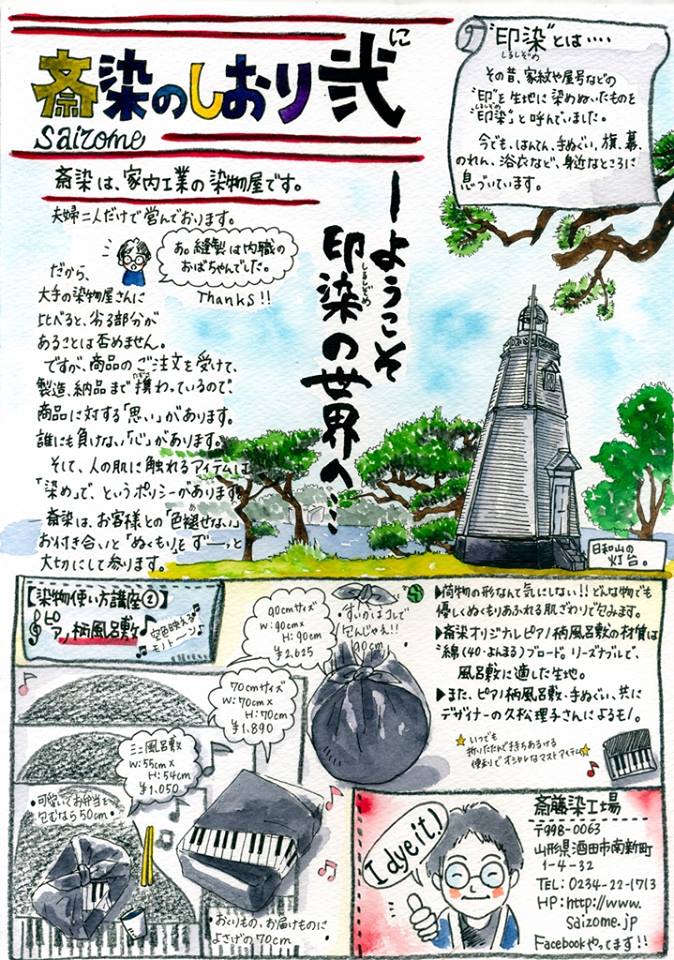 斎染のしおり 弐
に
saizome
斎染は、家内工業の染物屋です。
夫婦二人だけで営んでおります。
あ。縫製は内職の
おばちゃんでした。
Thanks!!
だから、
大手の染物屋さんに
比べると、劣る部分が
あることは否めません。
ですが、商品のご注文を受けて、
製造、納品まで携わっているので、
商品に対する「思い」があります。
誰にも負けない「心」があります。
そして、人の肌に触れるアイテムは
「染め」で、というポリシーがあります。
斎染は、お客様との「色褪せない」
お付き合いと「ぬくもり」をずーっと
大切にして参ります。
ーようこそ
印染の世界へ…
しるしぞめ
"印染"とは・・・・
しるしぞめ
その昔、家紋や屋号などの
"印"を生地に染めぬいたものを
"印染"と呼んでいました。
しるしぞめ
今でも、はんてん、手ぬぐい、旗、幕、
のれん、浴衣など、身近なところに
息づいています。
日和山の
灯台。
【染物使い方講座②】
ピアノ柄風呂敷
空色映える
モノトーン
90cmサイズ
W:90cm×
H:90cm
¥2,625
すいかはコレで
包んじゃえ!!
90cm
70cmサイズ
W:70cm×
H:70cm
¥1,890
ミニ風呂敷
W:55cm×
H:54cm
¥1,050
・可愛いてお弁当を
包むなら50cm・
・おくりもの、お届けものに
よさげの70cm
▶荷物の形なんて気にしない!!どんな物でも
優しくぬくもりあふれる肌ざわりで包みます。
▶斎染オリジナルピアノ柄風呂敷の材質は
綿(40・よんまる)ブロード。リーズナブルで、
風呂敷に適した生地。
▶また、ピアノ柄風呂敷・手ぬぐい、共に
デザイナーの久松理子さんによるモノ。
いつでも
折りたたんで持ちあるける
便利でオシャレなマストアイテム
I dye it!
斎藤染工場
〒998-0063
山形県酒田市南新町
1-4-32
TEL:0234-22-1713
HP:http://www.
saizome.jp
Facebookやってます!!